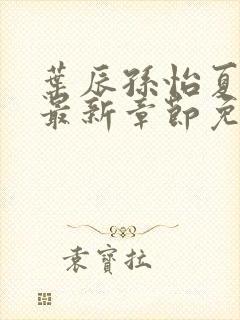 葉辰孫怡夏
最新章節免
袁寶拉